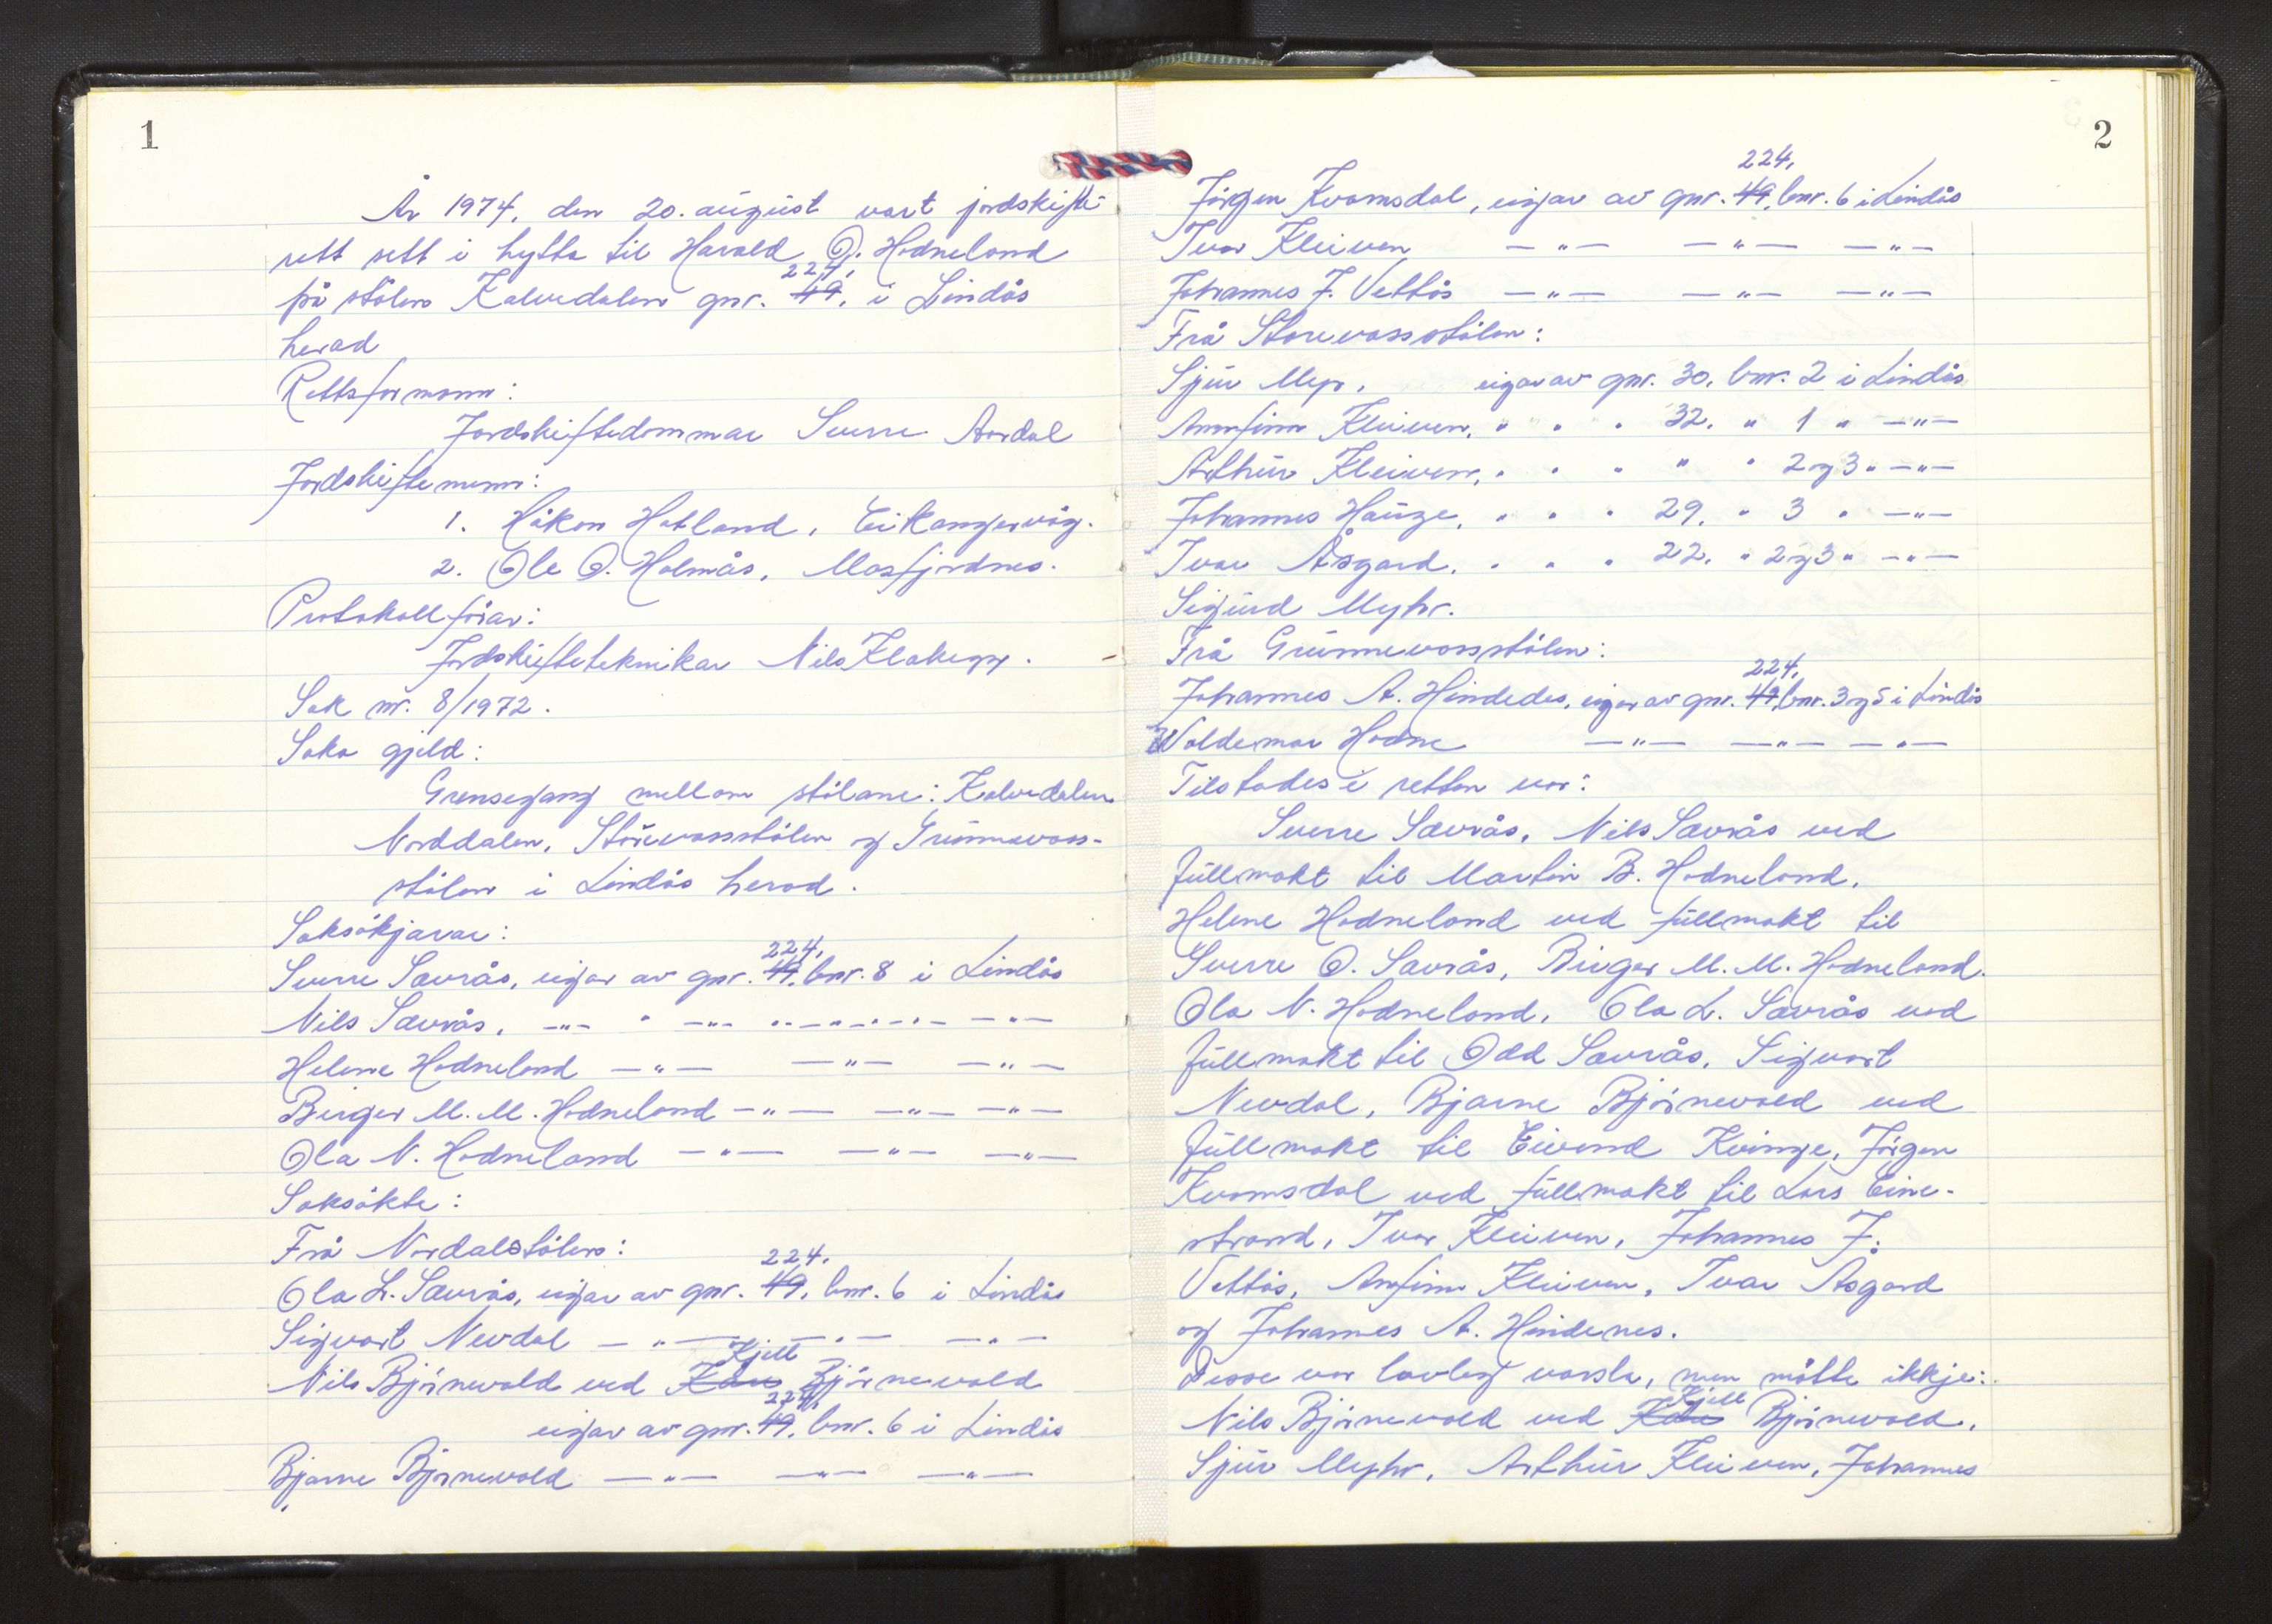 1
År 1974, den 20. august vart jordskifte-
rett sett i hytta til Harald O. Hodneland
224,
på stølen Kalvedalen gnr. 49, i Lindås
herad
Rettsformann:
Jordskiftedommar Sverre Aardal
Jordskiftemenn:
1. Håkon Hatland, Eikangervåg.
2. Ole O. Holmås, Masfjordnes.
Protokollførar:
Jordskifteteknikar Nils Flakegg.
Sak nr. 8/1972.
Saka gjeld:
Grensegang mellom stølane: Kalvedalen
Norddalen, Storevasstølen og Grunnevass-
stølen i Lindås herad.
Saksøkjarar:
224,
Sverre Sævrås, eigar av gnr. 49, bnr. 8 i Lindås
Nils Sævrås, —"— " —"— —"— —"—
Helene Hodneland —"— —"— —"—
Birger M. M. Hodneland —"— —"— —"—
Ola N. Hodneland —"— —"— —"—
Saksøkte:
Frå Nordalstølen:
224,
Ola L. Sævrås, eigar av gnr. 49, bnr. 6 i Lindås
Sigvart Nevdal —"— —"— —"—
Kjell
Nils Bjørnevold ved Bjørnevold
224,
eigar av gnr. 49, bnr. 6 i Lindås
Bjarne Bjørnevold —"— —"— —"—
2
224,
Jørgen Kvamsdal, eigar av gnr. 49, bnr. 6 i Lindås
Ivar Kleiven —"— —"— —"—
Johannes J. Vettås —"— —"— —"—
Frå Storevasstølen:
Sjur Myr, eigar av gnr. 30, bnr. 2 i Lindås
Arnfinn Kleiven, " " " 32, " 1 " —"—
Arthur Kleiven, " " " " " 2 og 3 " —"—
Johannes Hauge, " " " 29, " 3 " —"—
Ivar Åsgard, " " " 22, " 2 og 3 " —"—
Sigurd Myhr.
Frå Grunnevasstølen:
224,
Johannes A. Hindedes, eigar av gnr. 49, bnr. 3 og 5 i Lindås
Woldemar Hodne —"— —"— —"—
Tilstades i retten var:
Sverre Sævrås, Nils Sævrås ved
fullmakt til Martin B. Hodneland,
Helene Hodneland ved fullmakt til
Sverre O. Sævrås, Birger M. M. Hodneland.
Ola N. Hodneland, Ola L. Sævrås ved
fullmakt til Odd Sævrås, Sigvart
Nevdal, Bjarne Bjørnevold ved
fullmakt til Eivind Kvinge, Jørgen
Kvamsdal ved fullmakt til Lars Eine-
strand, Ivar Kleiven, Johannes J.
Vettås, Arnfinn Kleiven, Ivar Åsgard
og Johannes A. Hindenes.
Desse var lovleg varsla, men møtte ikkje:
Kjell
Nils Bjørnevold ved Bjørnevold,
Sjur Myhr, Arthur Kleiven, Johannes